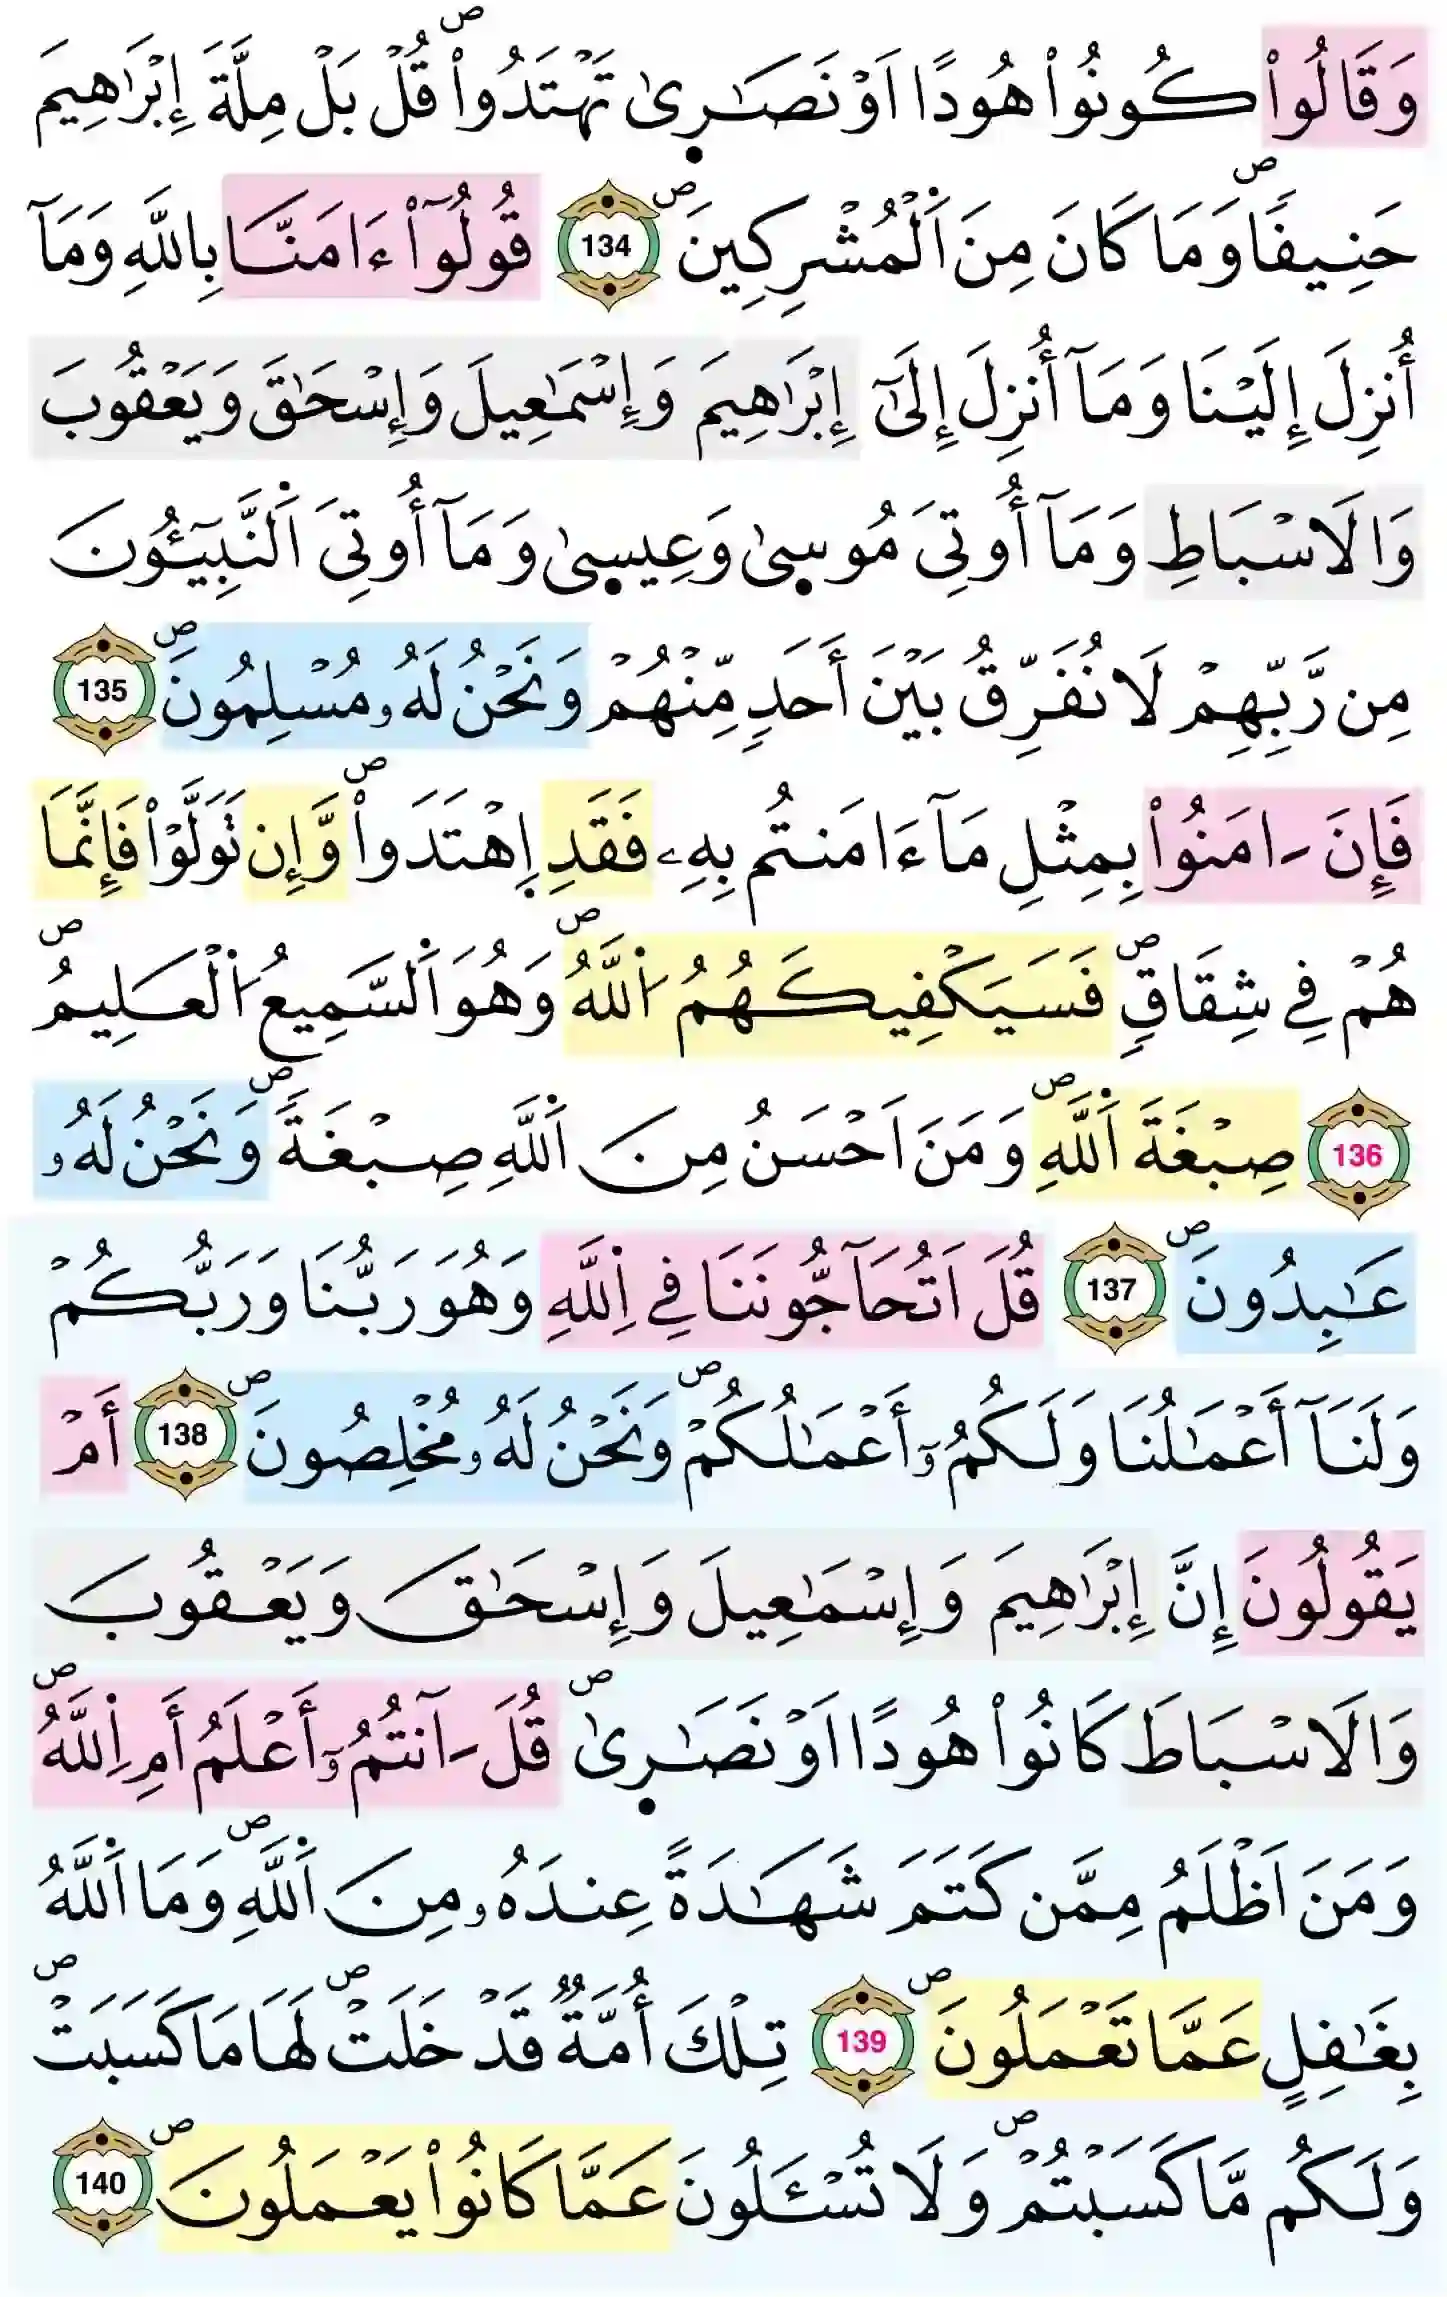 وَقَالُواْ كُونُواْ هُودًا اَوْ نَصَٰرٜىٰ تَهْتَدُواْۖ قُلْ بَلْ مِلَّةَ إِبْرَٰهِيمَ
حَنِيفٗاۖ وَمَا كَانَ مِنَ اَ۬لْمُشْرِكِينَۖ 134 قُولُوٓاْ ءَامَنَّا بِاللَّهِ وَمَآ
أُنزِلَ إِلَيْنَا وَمَآ أُنزِلَ إِلَىٰٓ إِبْرَٰهِيمَ وَإِسْمَٰعِيلَ وَإِسْحَٰقَ وَيَعْقُوبَ
وَالَاسْبَاطِ وَمَآ أُوتِيَ مُوسٜىٰ وَعِيسٜىٰ وَمَآ أُوتِيَ اَ۬لنَّبِيٓـُٔونَ
مِن رَّبِّهِمْ لَا نُفَرِّقُ بَيْنَ أَحَدٖ مِّنْهُمْ وَنَحْنُ لَهُۥ مُسْلِمُونَۖ 135
فَإِنَ ـ اٰمَنُواْ بِمِثْلِ مَآ ءَامَنتُم بِهِۦ فَقَدِ اِ۪هْتَدَواْۖ وَّإِن تَوَلَّوْاْ فَإِنَّمَا
هُمْ فِي شِقَاقٖۖ فَسَيَكْفِيكَهُمُ اُ۬للَّهُۖ وَهُوَ اَ۬لسَّمِيعُ اُ۬لْعَلِيمُۖ
136 صِبْغَةَ اَ۬للَّهِۖ وَمَنَ اَحْسَنُ مِنَ اَ۬للَّهِ صِبْغَةٗۖ وَنَحْنُ لَهُۥ
عَٰبِدُونَۖ 137 قُلَ اَتُحَآجُّونَنَا فِي اِ۬للَّهِ وَهُوَ رَبُّنَا وَرَبُّكُمْ
وَلَنَآ أَعْمَٰلُنَا وَلَكُمُۥٓ أَعْمَٰلُكُمْۖ وَنَحْنُ لَهُۥ مُخْلِصُونَۖ 138 أَمْ
يَقُولُونَ إِنَّ إِبْرَٰهِيمَ وَإِسْمَٰعِيلَ وَإِسْحَٰقَ وَيَعْقُوبَ
وَالَاسْبَاطَ كَانُواْ هُودًا اَوْ نَصَٰرٜىٰۖ قُلَ ـ آنتُمُۥٓ أَعْلَمُ أَمِ اِ۬للَّهُۖ
وَمَنَ اَظْلَمُ مِمَّن كَتَمَ شَهَٰدَةً عِندَهُۥ مِنَ اَ۬للَّهِۖ وَمَا اَ۬للَّهُ
بِغَٰفِلٍ عَمَّا تَعْمَلُونَۖ 139 تِلْكَ أُمَّةٞ قَدْ خَلَتْۖ لَهَا مَا كَسَبَتْۖ
وَلَكُم مَّا كَسَبْتُمْۖ وَلَا تُسْـَٔلُونَ عَمَّا كَانُواْ يَعْمَلُونَۖ 140